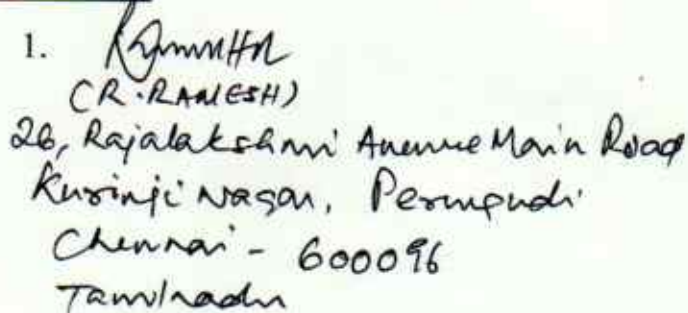 1.
(R. RAMESH)
26, Rajalakshmi Avenue Main Road
Kurinji Nagar, Perungudi
Chennai - 600096
Tamilnadu